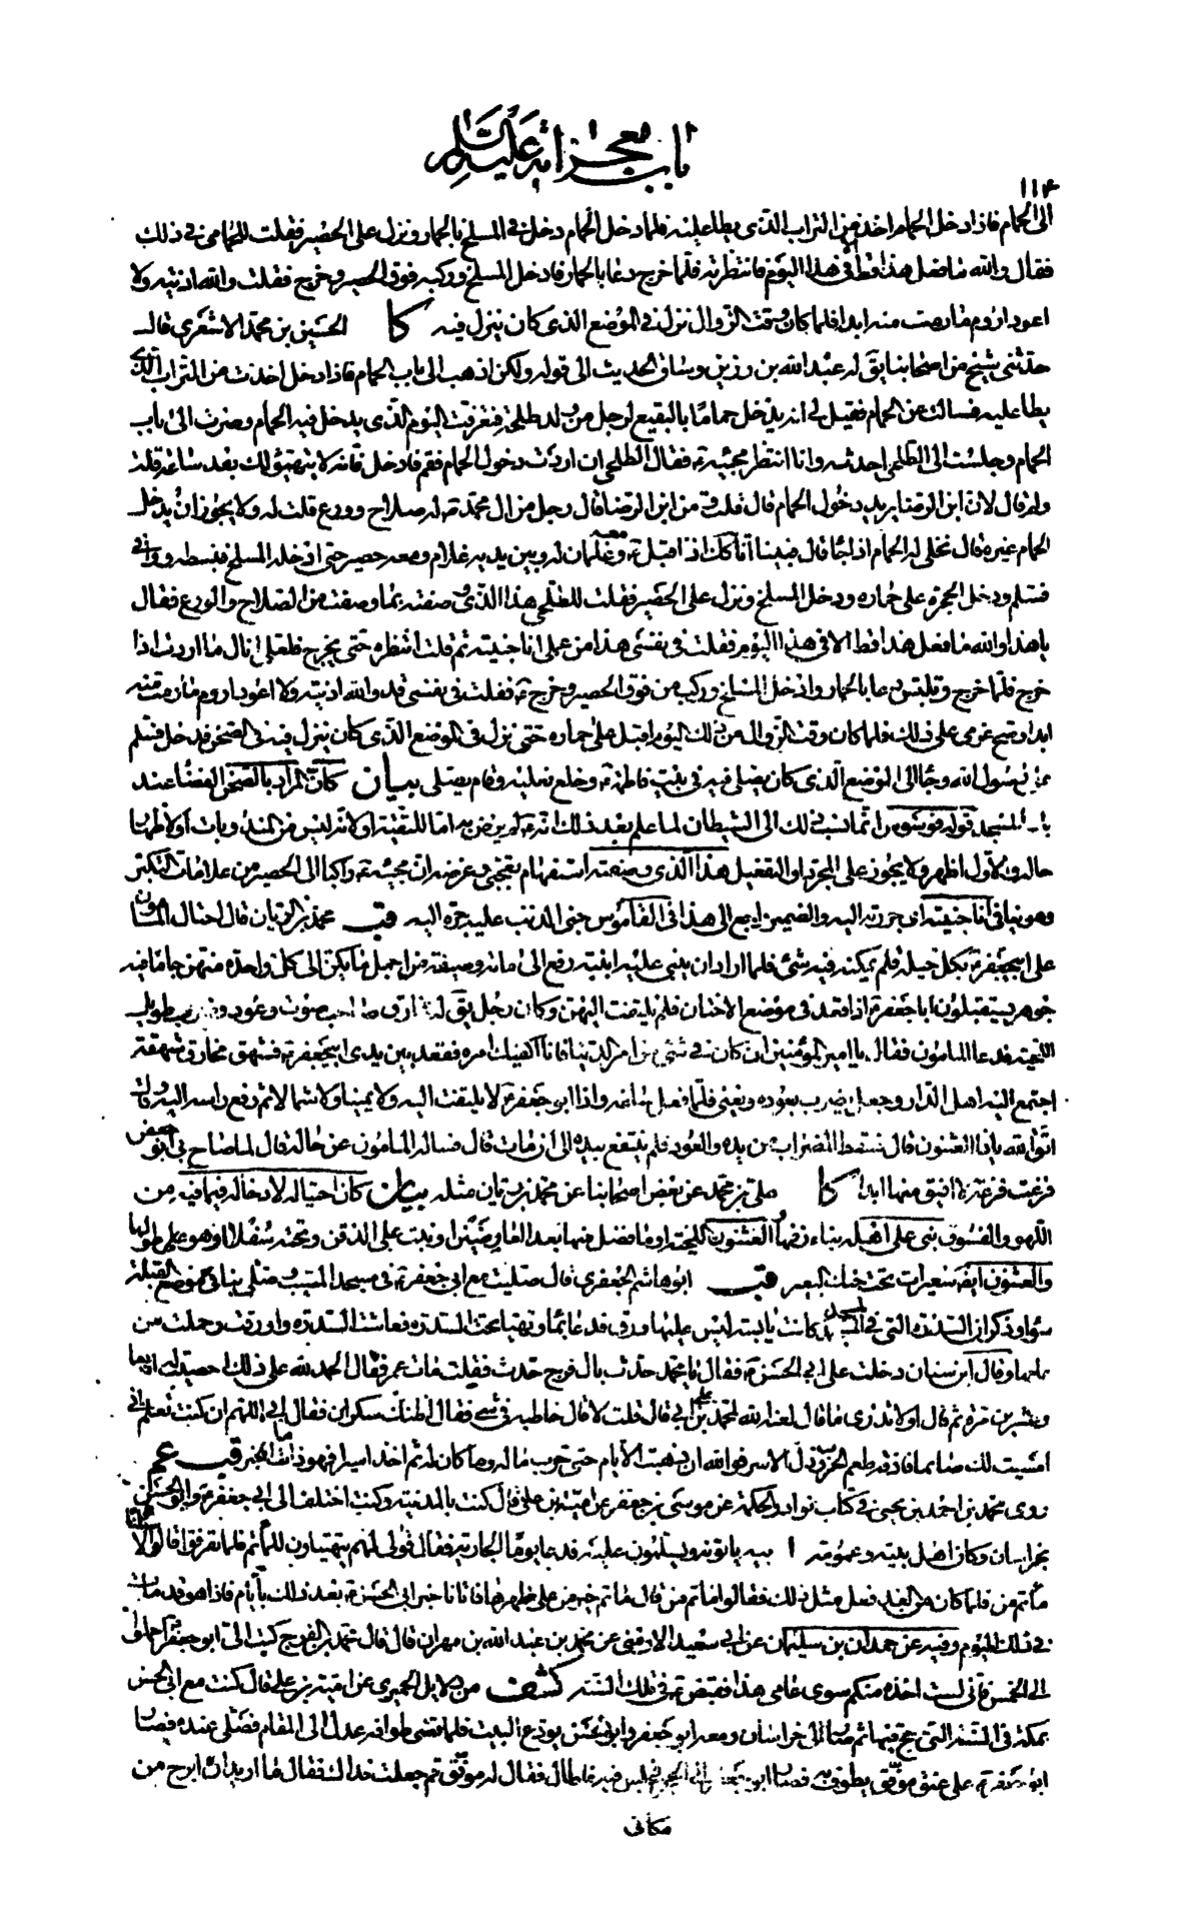 باب معجزاته عليه السلام
١١٤
الى الحمام فاذا دخل الحمام اخذ من التراب الذى يطأ عليه فلما دخل الحمام دخل فى المسلخ بالحمار ونزل على الحصير فقلت للحمامى فى ذلك
فقال والله ما فعل هذا قط الا فى هذا اليوم فانتظرته فلما خرج دعا بالحمار فادخل المسلخ وركبه فوق الحصير وخرج فقلت والله اذيته ولا
اعود اروم ما رمت منه ابدا فلما كان وقت الزوال نزل فى الموضع الذى كان ينزل فيه كا الحسين بن محمد الاشعرى قال
حدثنى شيخ من اصحابنا يق له عبد الله بن رزين وساق الحديث الى قوله ولكن اذهب الى باب الحمام فاذا دخل اخذت من التراب الذى
يطا عليه فسالت عن الحمام فقيل لى انه يدخل حماما بالبقيع لرجل من ولد طلحة فتعرفت اليوم الذى يدخل فيه الحمام وصرت الى باب
الحمام وجلست الى الطلحى احدثه وانا انتظر مجيئه ع فقال الطلحى ان اردت دخول الحمام فقم فادخل فانه لا يتهيؤ لك بعد ساعة قلت
ولم قال لان ابن الرضا يريد دخول الحمام قال قلت ومن ابن الرضا قال رجل من ال محمد ص له صلاح وورع قلت له ولا يجوز ان يدخل
الحمام غيره قال نخلى له الحمام اذا جا قال فبينا انا كك اذ اقبل ع ومعه غلمان له وبين يديه غلام ومعه حصير حتى ادخله المسلخ فبسطه ووافى
فسلم ودخل الحجرة على حماره ودخل المسلخ ونزل على الحصير فقلت للطلحى هذا الذى وصفته بما وصفت من الصلاح والورع فقال
يا هذا والله ما فعل هذا قط الا فى هذا اليوم فقلت فى نفسى هذا من عملى انا جنيته ثم قلت انتظره حتى يخرج فلعلى انال ما اردت اذا
خرج فلما خرج وتلبس دعا بالحمار وادخل المسلخ وركب من فوق الحصير وخرج ع فقلت فى نفسى قد والله اذيته ولا اعود اروم ما رمت منه
ابدا وصح عزمى على ذلك فلما كان وقت الزوال من ذلك اليوم اقبل على حماره حتى نزل فى الموضع الذى كان ينزل فيه فى الصحن فدخل فسلم
على رسول الله وجا الى الموضع الذى كان يصلى فيه فى بيت فاطمة ع وخلع نعليه وقام يصلى بيان كأن المراد بالصحن الفضا عند
باب المسجد قوله فوسوس انما نسب ذلك الى الشيطان لما علم بعد ذلك انه ع لم يرض به اما للتقية او لانه ليس من المندوبات او لاظهار
حاله والاول اظهر ولا يجوز على المجرد او التفعيل هذا الذى وصفته استفهام تعجبى وغرضه ان مجيئه ع راكبا الى الحصير من علامات التكبر
وهو ينافى انا جنيته اى جررته اليه والضمير راجع الى هذا فى القاموس جنى الذنب عليه جره اليه قب محمد بن الريان قال احتال المامون
على ابيجعفر ع بكل حيلة فلم يمكنه فيه شئ فلما اراد ان يبنى عليه ابنته دفع الى مائة وصيفة من اجمل ما يكن الى كل واحدة منهن جاما فيه
جوهر يستقبلون ابا جعفر ع اذا قعد فى موضع الاختان فلم يلتفت اليهن وكان رجل يق له مخارق صاحب صوت وعود وضرب طويل
اللحية فدعا المامون فقال يا امير المؤمنين ان كان فى شئ من امر الدنيا فانا اكفيك امره فقعد بين يدى ابيجعفر ع فشهق مخارق شهقة
اجتمع اليه اهل الدار وجعل يضرب بعوده ويغنى فلما فعل ساعة واذا ابو جعفر ع لا يلتفت اليه ولا يمينا ولا شمالا ثم رفع راسه اليه وقال
اتق الله يا ذا العثنون قال فسقط المضراب من يده والعود فلم ينتفع بيده الى ان مات قال فساله المامون عن حاله قال لما صاح بى ابو جعفر
فزعت فزعة لا افيق منها ابدا كا على بن محمد عن بعض اصحابنا عن محمد بن الريان مثله بيان كان احتياله لادخاله فيما فيه من
اللهو والفسوق بنى على اهله بناء زفها والعثنون اللحية او ما فضل منها بعد العارضين او نبت على الذقن وتحته سفلا او هو طولها
والعثنون ايضا شعيرات تحت حنك البعير قب ابو هاشم الجعفرى قال صليت مع ابى جعفر ع فى مسجد المسيب وصلى بنا فى موضع القبلة
سواء وذكر ان السدرة التى فى المسجد كانت يابسة ليس عليها ورق فدعا بما وتهيا تحت السدرة فعاشت السدرة واورقت وحملت من
عامها وقال ابن سنان دخلت على ابى الحسن ع فقال يا محمد حدث بال فرج حدث فقلت مات عمر فقال الحمد لله على ذلك احصيت له اربعا
وعشرين مرة ثم قال اولا تدرى ما قال لعنه الله لمحمد بن على ابى قال قلت لا قال خاطبه فى شئ فقال اظنك سكران فقال ابى اللهم ان كنت تعلم انى
امسيت لك صائما فاذقه طعم الحرب وذل الاسر فوالله ان ذهبت الايام حتى حرب ماله وما كان له ثم اخذ اسيرا فهو ذا مات الخبر قب عم
روى محمد بن احمد بن يحيى فى كتاب نوادر الحكمة عن موسى بن جعفر عن امية بن على قال كنت بالمدينة وكنت اختلف الى ابى جعفر ع وابو الحسن
بخراسان وكان اهل بيته وعمومة ابيه ياتونه ويسلمون عليه فدعا يوما الجارية فقال قولى لهم يتهياون للماتم فلما تفرقوا قالوا الا سالناه
ماتم من فلما كان من الغد فعل مثل ذلك فقالوا ماتم من قال ماتم خير من على ظهرها فاتانا خبر ابى الحسن ع بعد ذلك بايام فاذا هو قد مات
فى ذلك اليوم وفيه عن حمدان بن سليمان عن ابى سعيد الارمنى عن محمد بن عبد الله بن مهران قال قال محمد بن الفرج كتب الى ابو جعفر احملوا
الى الخمس فانى لست اخذه منكم سوى عامى هذا فقبض ع فى تلك السنة كشف من دلائل الحميرى عن امية بن على قال كنت مع ابى الحسن
بمكة فى السنة التى حج فيها ثم صار الى خراسان ومعه ابو جعفر وابو الحسن يودع البيت فلما قضى طوافه عدل الى المقام فصلى عنده فصار
ابو جعفر ع على عنق موفق يطوف به فصار ابو جعفر الى الحجر فجلس فيه فاطال فقال له موفق قم جعلت فداك فقال ما اريد ان ابرح من
مكانى